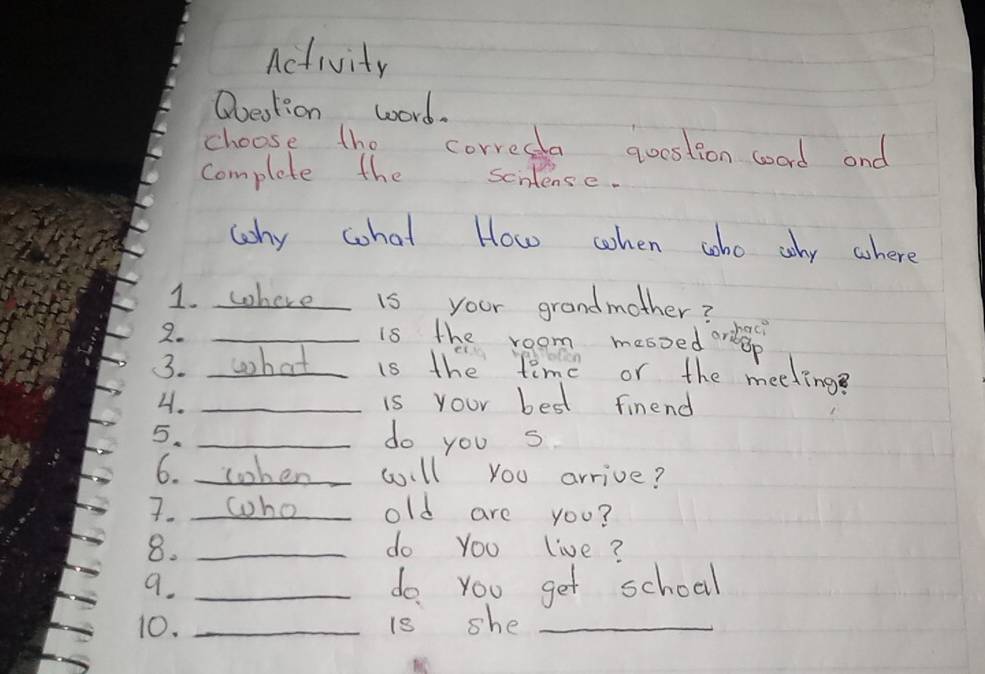 Activity
Question word.
choose the correcta question word and
complete the sentense.
why what How when who why where
1. where is your grandmother?
2. ________ is the room messed up
3. what is the time or the meeting?
4. ________ is your best finend
5. ________ do you s
6. when will you arrive?
7. who old are you?
8. ________ do you live?
9. ________ do you get school
10. ________ is she ________